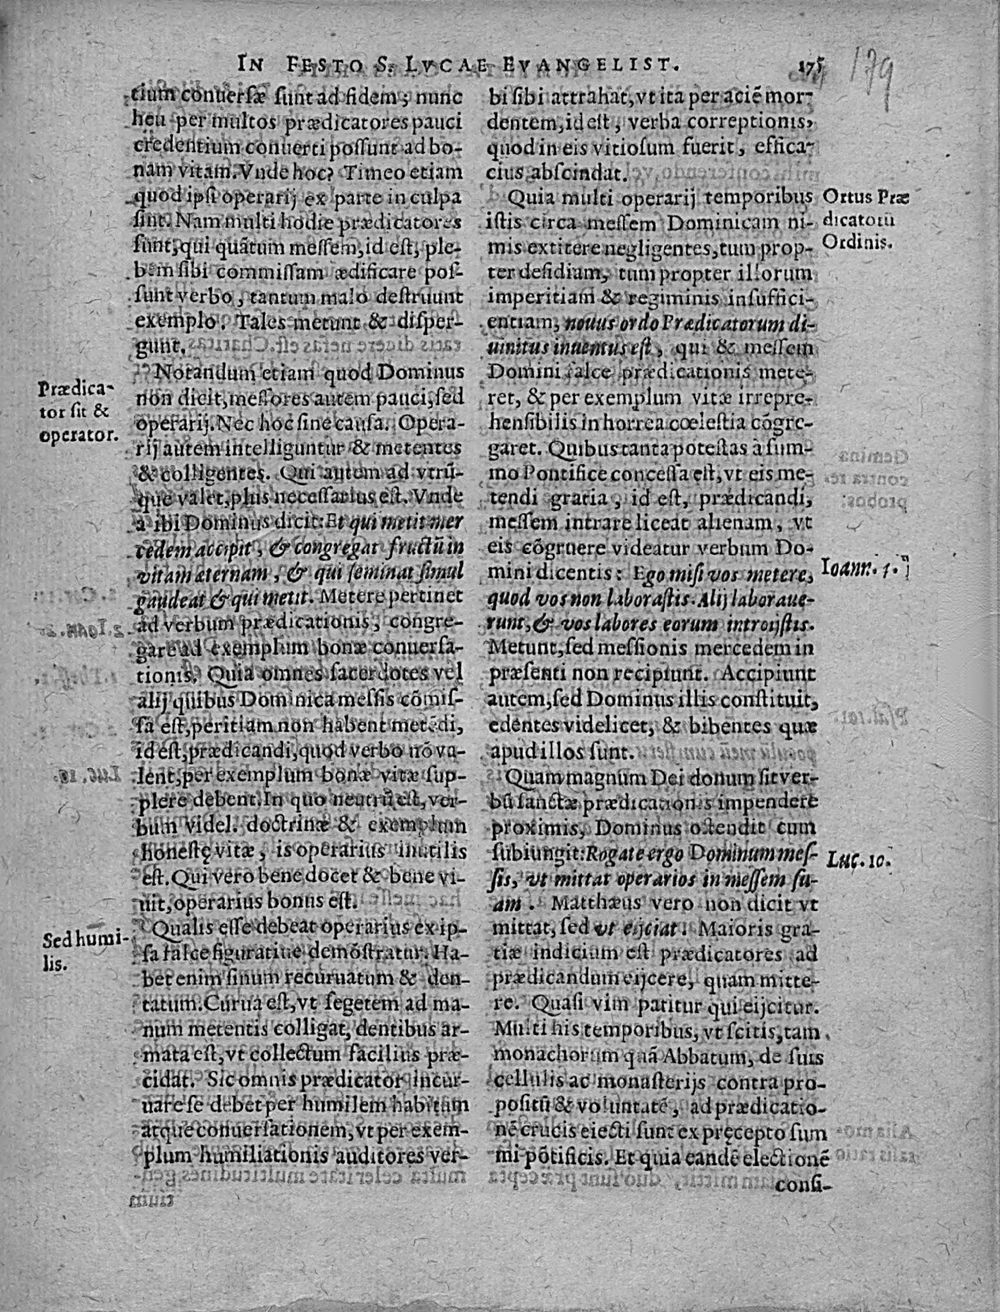 IN FESTO S. LVCAE EVANGELIST.
175
179
tium conuersæ sunt ad fidem; nunc
heu per multos prædicatores pauci
credentium conuerti possunt ad bo-
nam vitam. Vnde hoc? Timeo etiam
quod ipsi operarij ex parte in culpa
sint. Nam multi hodie prædicatores
sunt, qui quãtum messem, id est, ple-
bem sibi commissam ædificare pos-
sunt verbo, tantum malo destruunt
exemplo. Tales metunt & disper-
gunt.
Notandum etiam quod Dominus
non dicit, messores autem pauci, sed
operarij. Nec hoc sine causa. Opera-
rij autem intelliguntur & metentes
& colligentes. Qui autem ad vtrũ-
que valet, plus necessarius est. Vnde
a ibi Dominus dicit: Et qui metit mer
cedem accipit, & congregat fructũ in
vitam æternam, & qui seminat simul
gaudeat & qui metit. Metere pertinet
ad verbum prædicationis, congre-
gare ad exemplum bonæ conuersa-
tionis. Quia omnes sacerdotes vel
alij quibus Dominica messis cõmis-
sa est, peritiam non habent metẽdi,
id est, prædicandi, quod verbo nõ va-
lent, per exemplum bonæ vitæ sup-
plere debent. In quo neutrũ est, ver-
bum videl. doctrinæ & exemplum
honestę vitæ, is operarius inutilis
est. Qui vero bene docet & bene vi-
uit, operarius bonus est.
Qualis esse debeat operarius ex ip-
sa falce figuratiue demõstratur. Ha-
bet enim sinum recuruatum & den-
tatum. Curua est, vt segetem ad ma-
num metentis colligat, dentibus ar-
mata est, vt collectum facilius præ-
cidat. Sic omnis prædicator incur-
uare se debet per humilem habitum
atque conuersationem, vt per exem-
plum humiliationis auditores ver-
Prædica-
tor sit &
operator.
Sed humi-
lis.
bi sibi attrahat, vt ita per aciẽ mor-
dentem, id est, verba correptionis,
quod in eis vitiosum fuerit, effica-
cius abscindat.
Quia multi operarij temporibus
istis circa messem Dominicam ni-
mis extitere negligentes, tum prop-
ter desidiam, tum propter illorum
imperitiam & regiminis insuffici-
entiam, nouus ordo Prædicatorum di-
uinitus inuentus est, qui & messem
Domini falce prædicationis mete-
ret, & per exemplum vitæ irrepre-
hensibilis in horrea cœlestia cõgre-
garet. Quibus tanta potestas à sum-
mo Pontifice concessa est, vt eis me-
tendi gratia, id est, prædicandi,
messem intrare liceat alienam, vt
eis cõgruere videatur verbum Do-
mini dicentis: Ego misi vos metere,
quod vos non laborastis. Alij laboraue-
runt, & vos labores eorum introistis.
Metunt, sed messionis mercedem in
præsenti non recipiunt. Accipiunt
autem, sed Dominus illis constituit,
edentes videlicet, & bibentes quæ
apud illos sunt.
Quam magnum Dei donum sit ver-
bũ sanctæ prædicationis impendere
proximis, Dominus ostendit cum
subiungit: Rogate ergo Dominum mes-
sis, vt mittat operarios in messem su-
am. Matthæus vero non dicit vt
mittat, sed vt eijciat. Maioris gra-
tiæ indicium est prædicatores ad
prædicandum eijcere, quam mitte-
re. Quasi vim patitur qui eijcitur.
Multi his temporibus, vt scitis, tam
monachorum quã Abbatum, de suis
cellulis ac monasterijs contra pro-
positũ & voluntatẽ, ad prædicatio-
nẽ crucis eiecti sunt ex pręcepto sum
mi põtificis. Et quia eandẽ electionẽ
consi-
Ortus Præ
dicatorũ
Ordinis.
Ioann. 4.
Luc. 10.